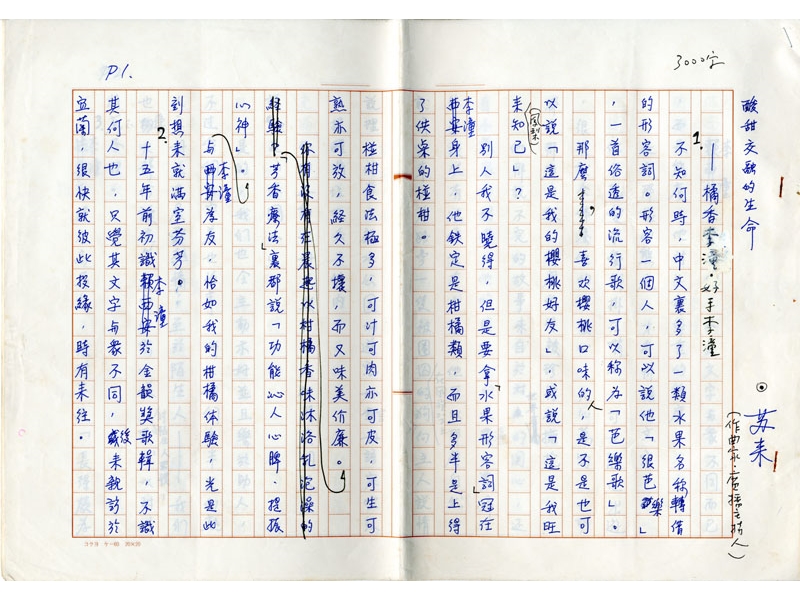 3000字
P1.
酸甜交融的生命
──橘香李潼·好手李潼
苏来
(作曲家·廣播主持人)
1.
而不知何時,中文裏多了一類水果名稱轉借
的形容詞。形容一個人,可以說他「很芭樂」
,一首俗透的流行歌,可以称为「芭樂歌」。
那麼,喜欢櫻桃口味的人,是不是也可
以說「這是我的櫻桃好友」,或説「這是我旺
來知己」?
(鳳梨)
別人我不曉得,但是要拿「水果形容詞」冠在
李潼身上,他鉄定是柑橘類,而且多半是上得
了供桌的椪柑。
椪柑食法極多,可汁可肉亦可皮,可生可
熟亦可放,經久不壞,而又味美价廉。
你有没有在晨起以柑橘香味沐浴乳泡澡的
經驗?芳香療法裏都說「功能沁人心脾、提振
心神」。
与李潼為友,恰如我的柑橘体驗,光是此
刻想来就滿室芬芳。
2.
十五年前初識李潼賴西安於金韻獎歌輯,不識
其何人也,只覺其文字与衆不同,後來親訪於
宜蘭,很快就彼此投緣,時有来往。